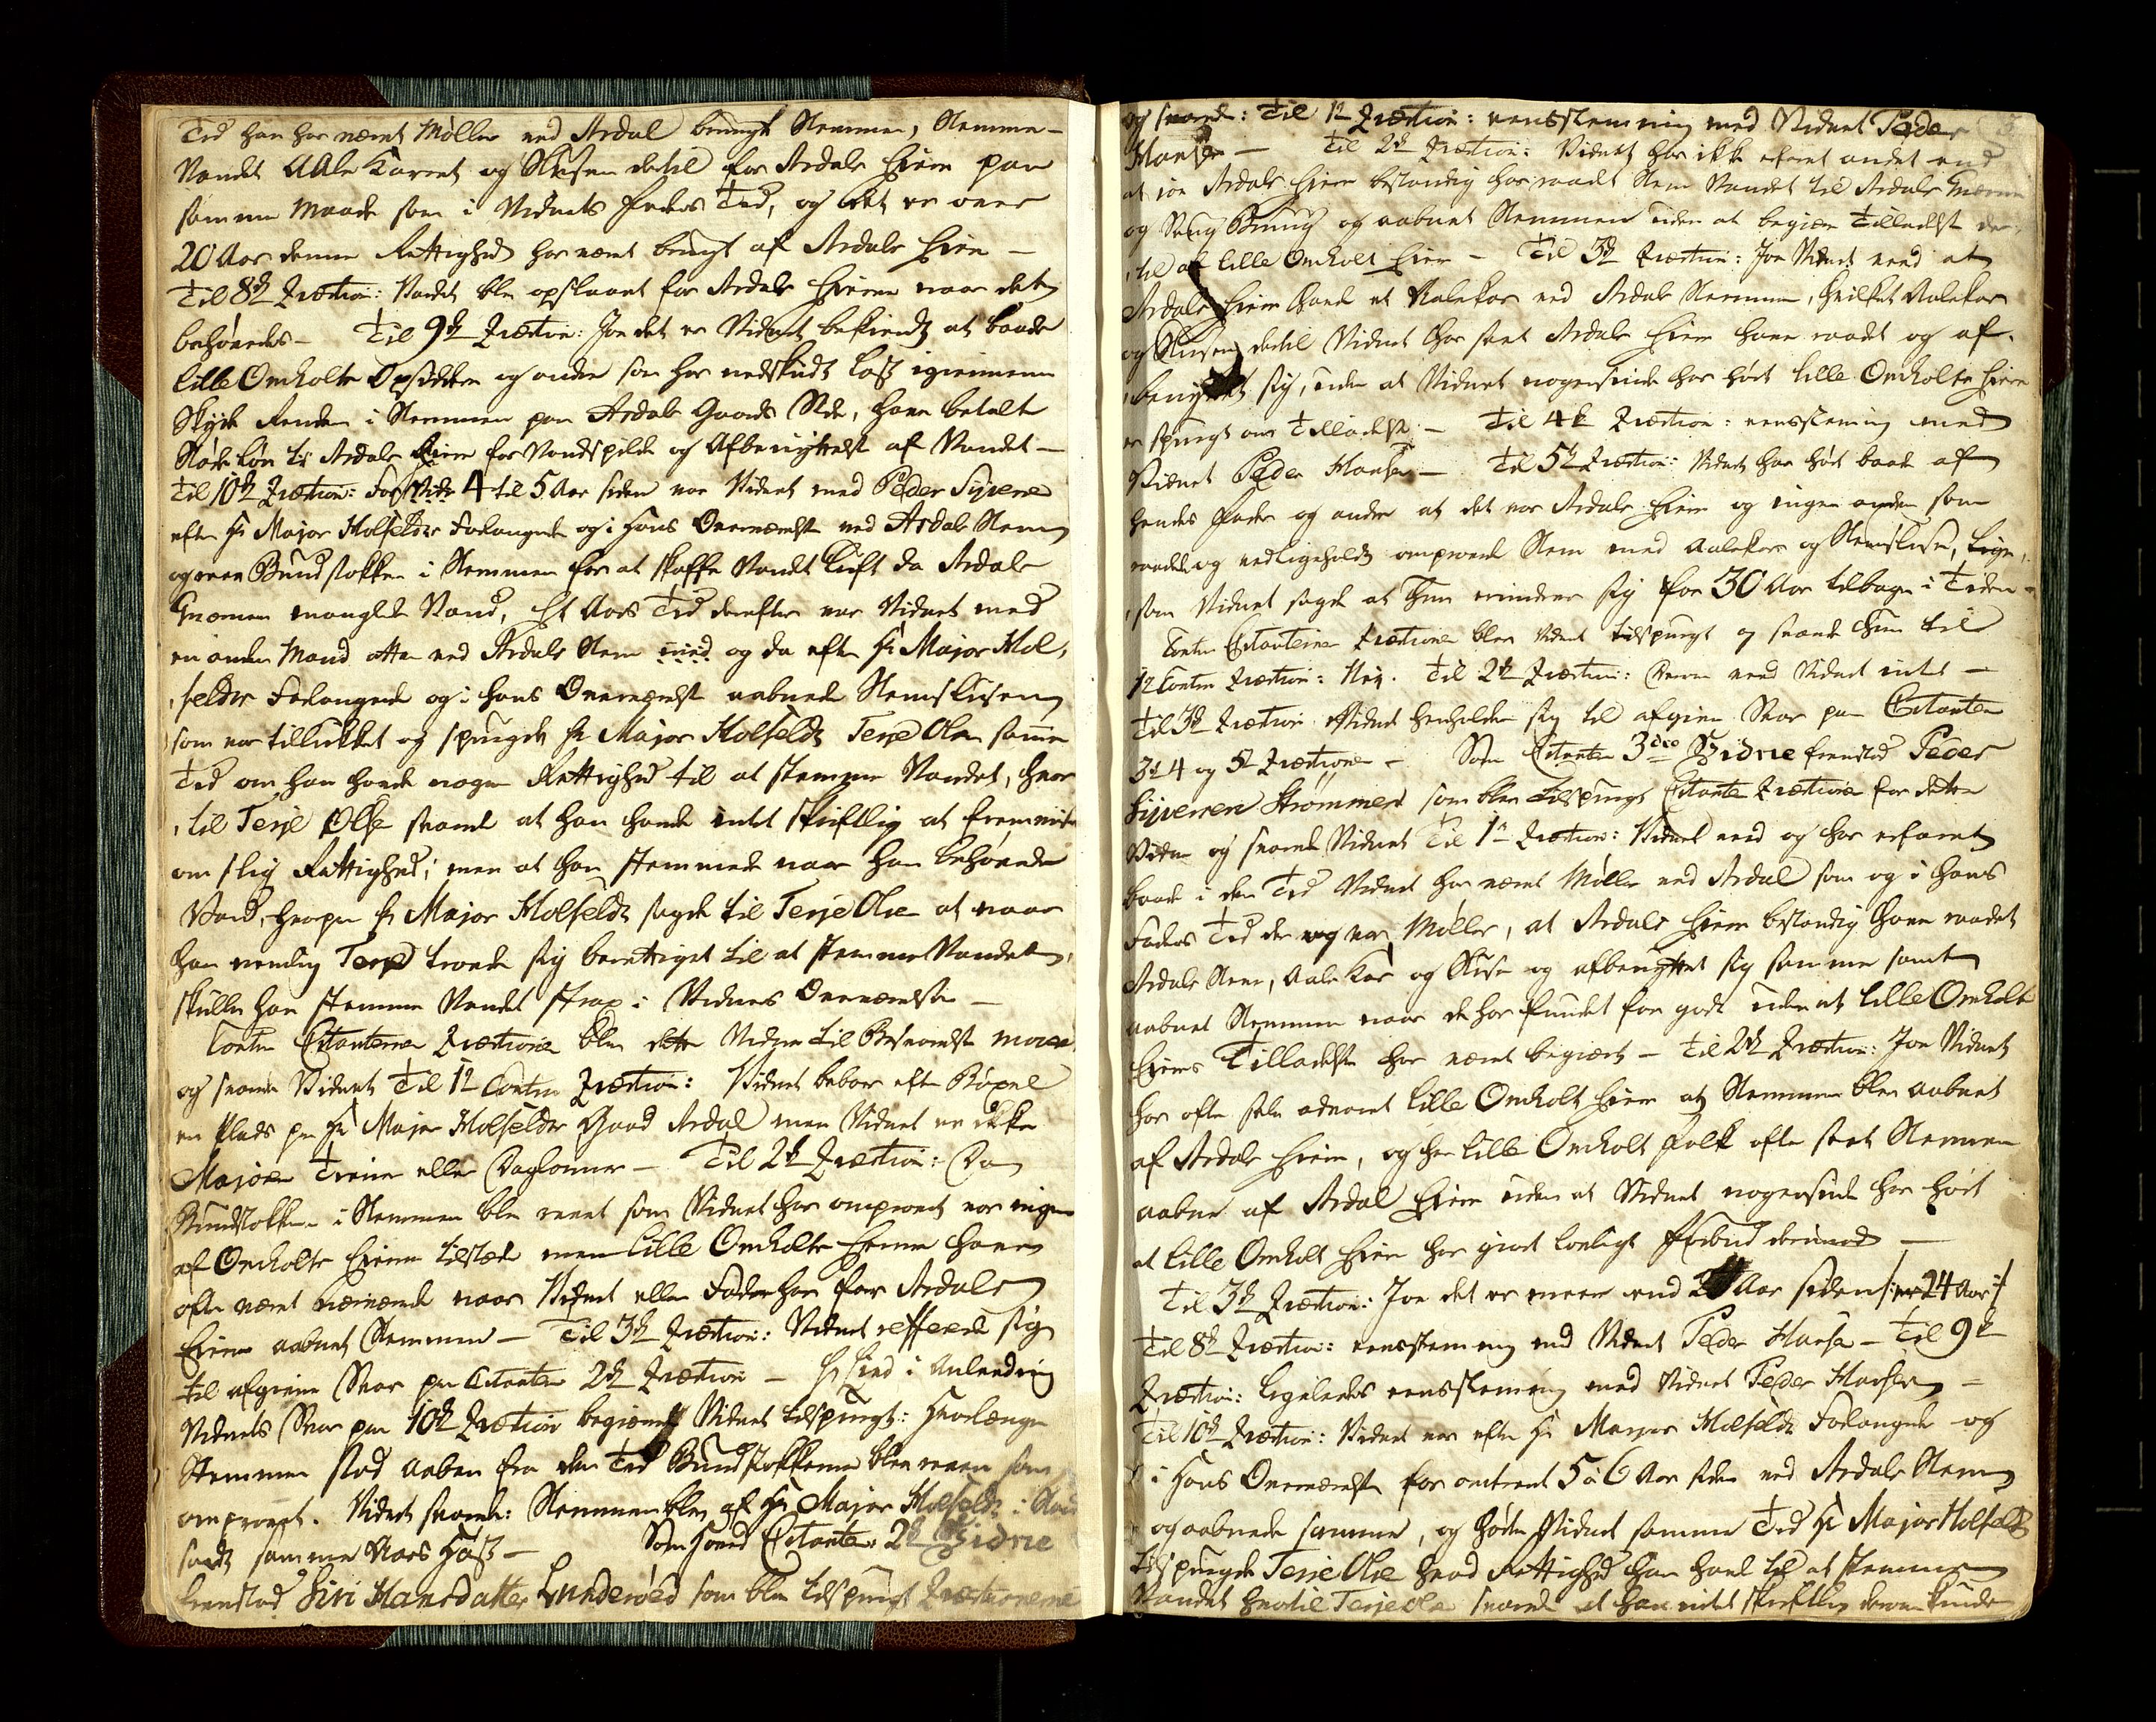 Tid han har været Møller ved Ardal brugt Stemmen, Stemme-
Vandet Aale Karret og Slusen dertil for Ardals Eiere paa
samme Maade som i Vidnets Faders Tid, og det er over
20 Aar denne Rettighed har været brugt af Ardals Eiere —
Til 8de Quæstion: Vandet blev opslaaet for Ardals Eiere naar det
behøvedes — Til 9de Quæstion: Joe det er Vidnet bekiendt at baade
Lille Omholts Opsidder og andre som har nedskudt Last igiennem
Skyde Renden i Stemmen paa Ardals Gaards Side, have betalt
Støde Løn til Ardals Eiere for Vandspilde og Afbenyttelse af Vandet —
Til 10de Quæstion: For 4 til 5 Aar siden var Vidnet med Peder Syvere
efter Hr Major Holfeldts Forlangende og i Hans Overværelse ved Ardals Stem
og Bundstokken i Stemmen for at skaffe Vandet Luft da Ardals
Qværnen manglede Vand, Et Aars Tid derefter var Vidnet med
en anden Mand atter ved Ardals Stem og da efter Hr Major Hol-
feldts Forlangende og i hans Overværelse aabnede Stemslusen
som var tillukket og spurgde Hr Major Holfeldt Terje Olsen samme
Tid om han havde nogen Rettighed til at stemme Vandet, hvor-
til Terje Olse svarede at han havde intet skriftlig at fremviise
om slig Rettighed; men at han stemmede naar han behøvede
Vand, hvorpaa Hr Major Holfeldt sagde til Terje Olse at naar
han nemlig Terje troede sig berettiget til at stemme Vandet,
skulle han stemme Vandet strax i Vidnes Overværelse —
Contra Citanternes Quæstioner blev dette Vidne til Besvarelse
og svarede Vidnet Til 1te Contra Quæstion: Vidnet beboer efter Bøxel
en Plads paa Hr Major Holfeldts Gaard Ardal men Vidnet er ikke
Majorens Tiener eller Daglønner — Til 2de Quæstion: Da
Bundstokken i Stemmen blev som Vidnet har omprovet var ingen
af Omholts Eierne tilstæde men Lille Omholts Eierne have
ofte været nærværende naar Vidnet eller Fader har for Ardals
Eiere aabnet Stemmen — Til 3de Quæstion: Vidnet refferede sig
til afgivne Svar paa Citantens 2de Quæstion — I Anledning
Vidnets Svar paa 10de Quæstion begiæredes Vidnet tilspurgt: Hvorlænge
Stemmen stod aaben fra den Tid Bundstokkerne blev som
omprovet. Vidnet svarede: Stemmen blev af Hr Major Holfeldt i Stand
sadt samme Aars Høst — Som Citantens 2de Vidne
fremstod Siri Hansdatter som blev tilspurgt Quæstionerne
og svarede: Til 1te Quæstion: eensstemmig med Vidnet Peder
Hansen — Til 2de Quæstion: Vidnet har ikke erfaret andet end
at joe Ardals Eiere bestandig har raadt Stem Vandet til Ardals Qværne
og Saug Brug og aabnet Stemmen uden at begiære Tilladelse der-
til af Lille Omholt Eiere — Til 3de Quæstion: Joe Vidnet veed at
Ardals Eiere havde et Aalekar ved Ardals Stemmen, hvilket Aalekar
og Slusen dertil Vidnet har seet Ardals Eiere have raadt og af-
benyttet sig, uden at Vidnet nogensinde har hørt Lille Omholts Eiere
er spurgt om Tilladelse — Til 4de Quæstion: eensstemmig med
Vidnet Peder Hansen — Til 5te Quæstion: Vidnet har hørt baade af
hendes Fader og andre at det var Ardals Eiere og ingen anden som
raadde og vedligeholdt omprovede Stem med Aalekar og Stemslusen,
som Vidnet sagde at hun minder sig for 30 Aar tilbage i Tiden —
Contra Citanternes Quæstioner blev Vidnet tilspurgt og svarede hun til
1te Contra Quæstion: Nej. Til 2de Quæstion: Derom veed Vidnet intet —
Til 3de Quæstion Vidnet henholder sig til afgivne Svar paa Citanten
3de 4 og 5te Quæstioner — Som Citantens 3die Vidne fremstod Peder
Syversen Strømmen som blev tilspurgt Citantens Quæstioner for dette
Vidne og svarede Vidnet Til 1te Quæstion: Vidnet veed og har erfaret
baade i den Tid Vidnet har været Møller ved Ardal som og i hans
Faders Tid der og var Møller, at Ardals Eiere bestandig have raadet
Ardals Stem, Aale Kar og Sluse og afbenyttet sig samme samt
aabnet Stemmen naar de har fundet for godt uden at Lille Omholt
Eieres Tilladelse har været begiært — Til 2de Quæstion: Joe Vidnet
har ofte selv advaret Lille Omholt Eiere at Stemmen blev aabnet
af Ardals Eiere, og har Lille Omholt Folk ofte seet Stemmen
aabne af Ardal Eiere uden at Vidnet nogensinde har hørt
at Lille Omholt Eiere har giort lovligt Forbud derimod —
Til 3de Quæstion: Joe det er meere end Aar siden /: 24 Aar :/
Til 8de Quæstion: eensstemmig med Vidnet Peder Hansen — Til 9de
Quæstion: ligeledes eensstemmig med Vidnet Peder Hansen —
Til 10de Quæstion: Vidnet var efter Hr Major Holfeldts Forlangende og
i Hans Overværelse for omtrent 5 a 6 Aar siden ved Ardals Stem
og aabnede samme, og hørte Vidnet samme Tid Hr Major Holfeldt
tilspurgde Terje Olse hvad Rettighed han havde til at stemme
Vandet hvortil Terje Olse svarede at han intet skriftlig derom kunde